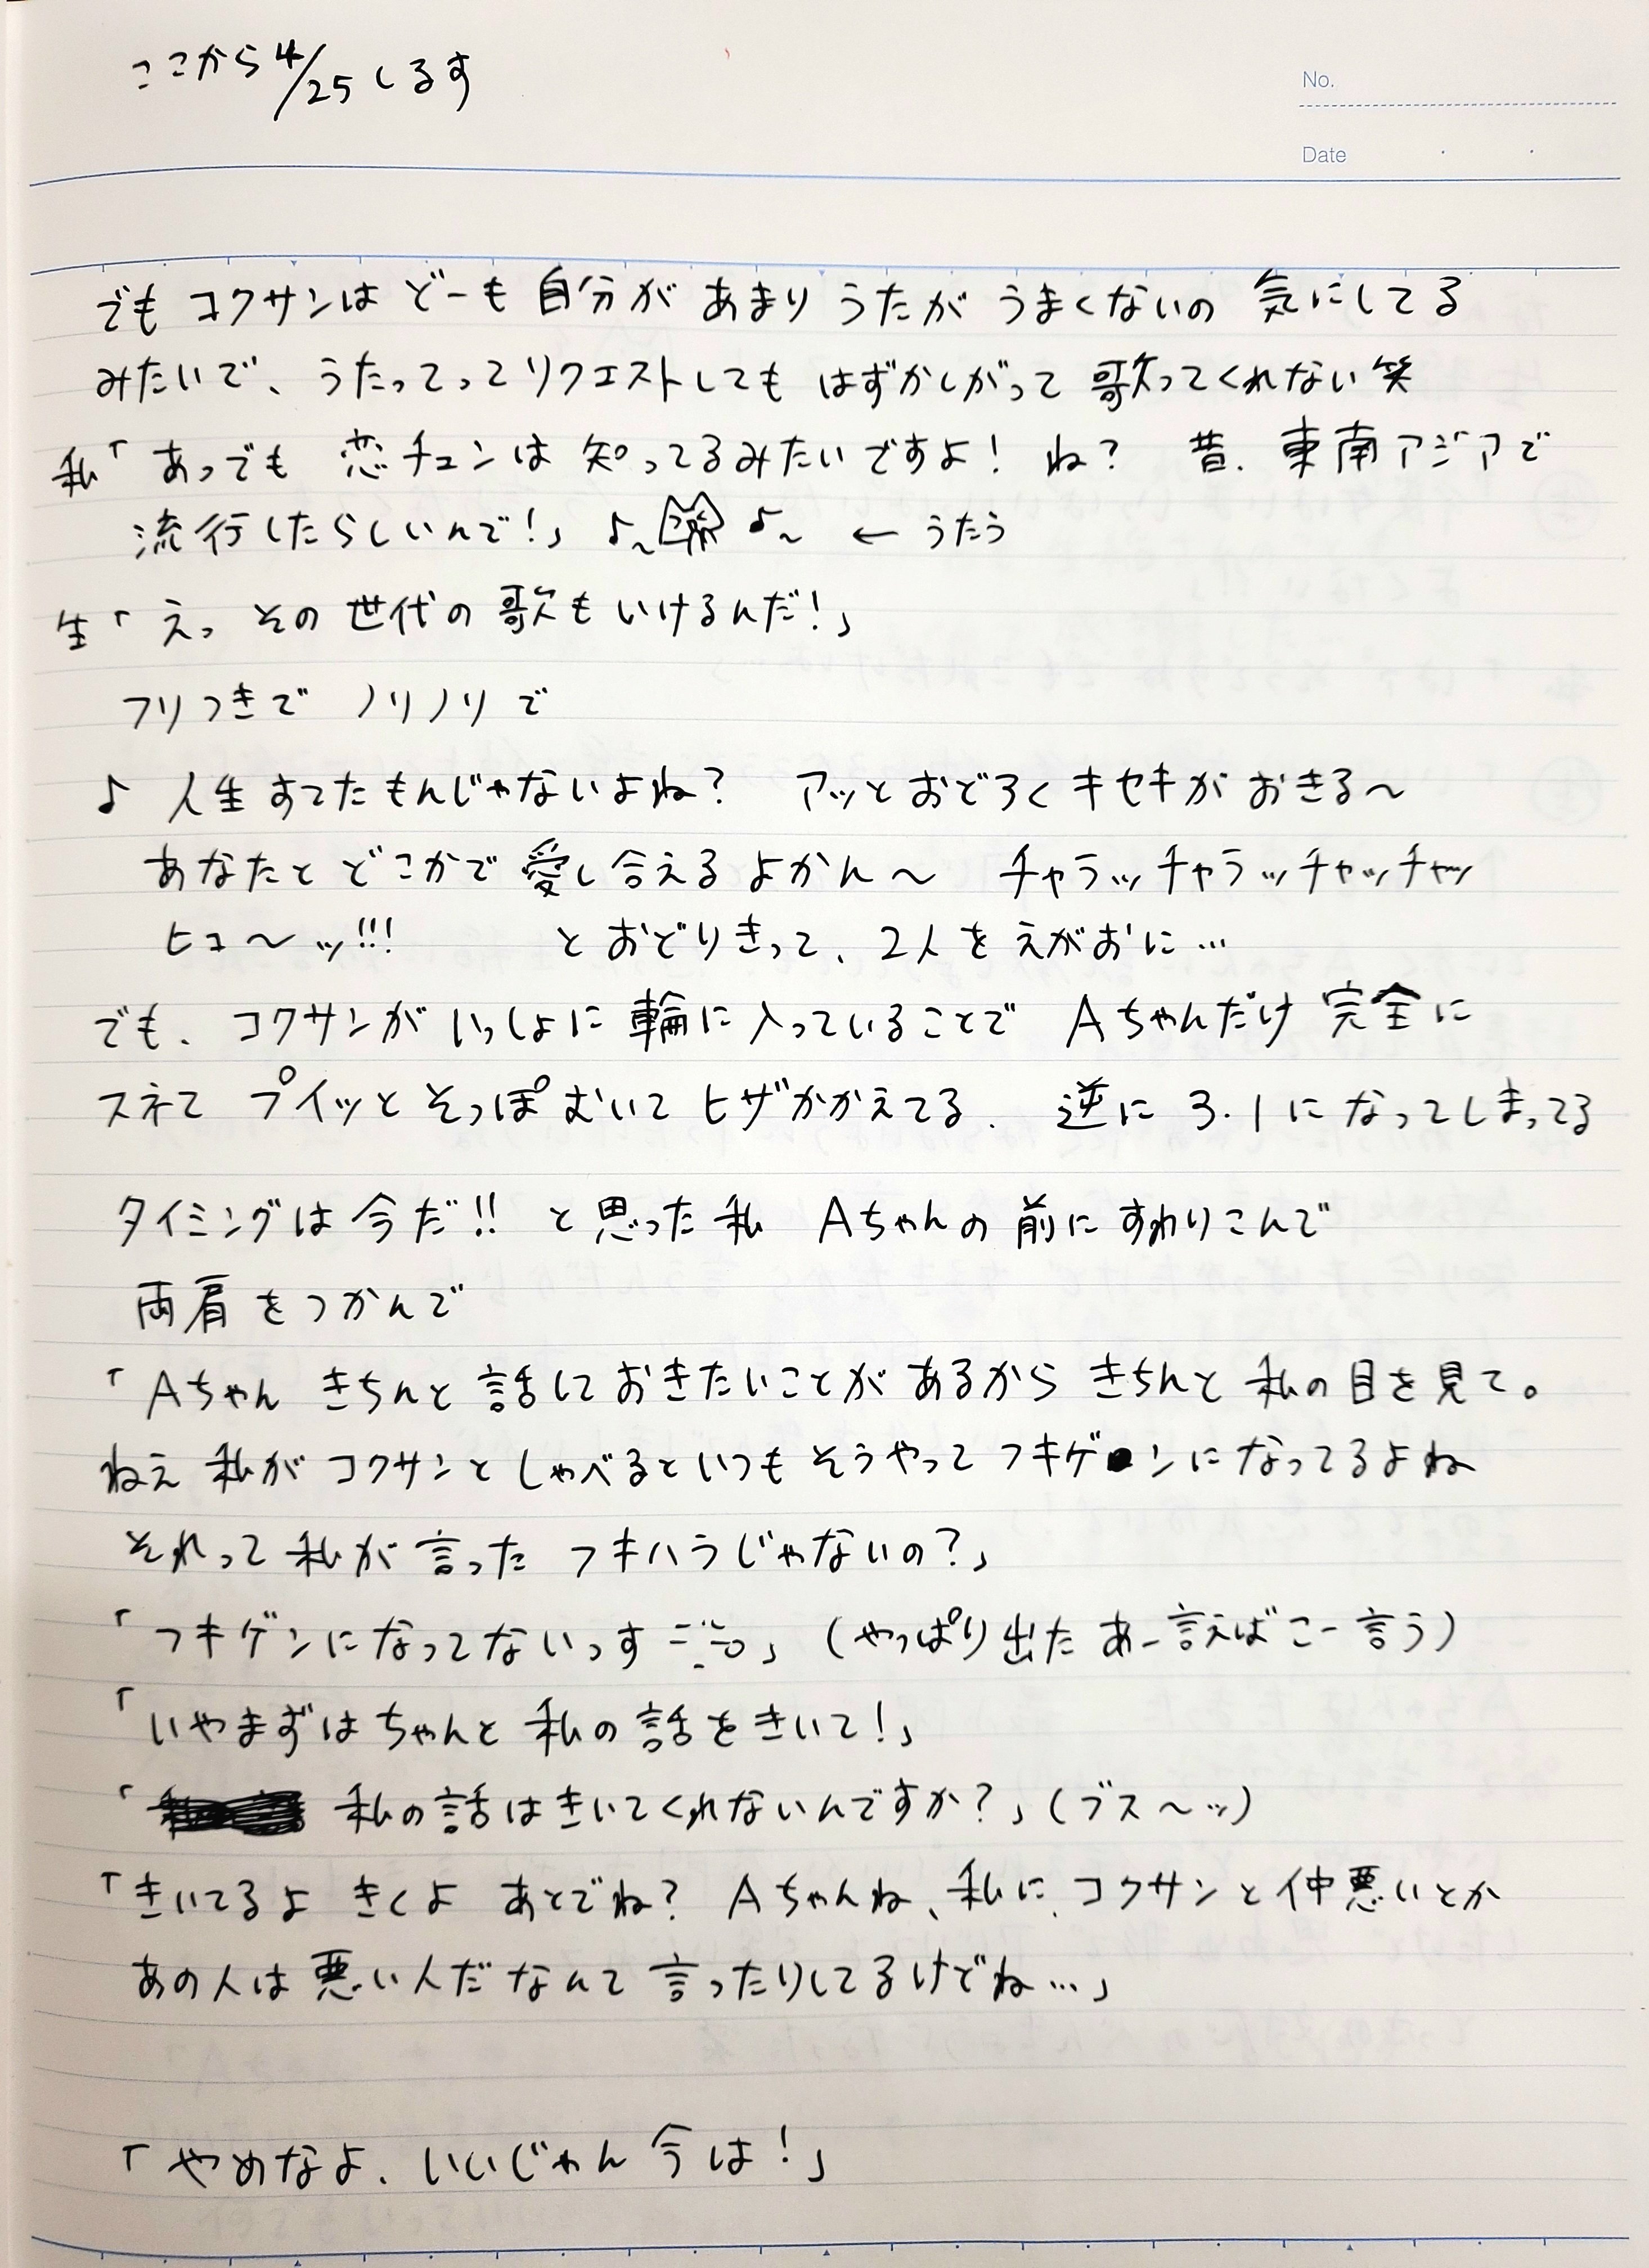 ここから4/25しるす
No.
Date
でも コクサンは どーも 自分が あまり うたが うまくないの 気にしてる
みたいで、うたってってリクエストしても はずかしがって 歌ってくれない笑
私「あっでも 恋チュンは 知ってるみたいですよ! ね? 昔、東南アジアで
流行したらしいんで!」♪~ ♪~ ← うたう
生「えっ その世代の歌もいけるんだ!」
フリつきで ノリノリで
♪ 人生すてたもんじゃないよね? アッとおどろくキセキがおきる~
あなたと どこかで 愛し合える よかん~ チャラッチャラッチャッチャッ
ヒュ~ッ!!! とおどりきって、2人をえがおに…
でも、コクサンがいっしょに輪に入っていることで Aちゃんだけ 完全に
スネて プイッとそっぽむいてヒザかかえてる. 逆に 3.1になってしまってる
タイミングは今だ!! と思った私 Aちゃんの前にすわりこんで
両肩をつかんで
「Aちゃん きちんと話しておきたいことがあるから きちんと私の目を見て。
ねえ 私がコクサンとしゃべるといつもそうやってフキゲンになってるよね
それって私が言ったフキハラじゃないの?」
「フキゲンになってないっす」(やっぱり出た あー言えばこー言う)
「いやまずはちゃんと私の話をきいて!」
「私の話はきいてくれないんですか?」(ブス~ッ)
「きいてるよ きくよ あとでね? Aちゃんね、私に、コクサンと仲悪いとか
あの人は悪い人だなんて言ったりしてるけどね…」
「やめなよ、いいじゃん今は!」